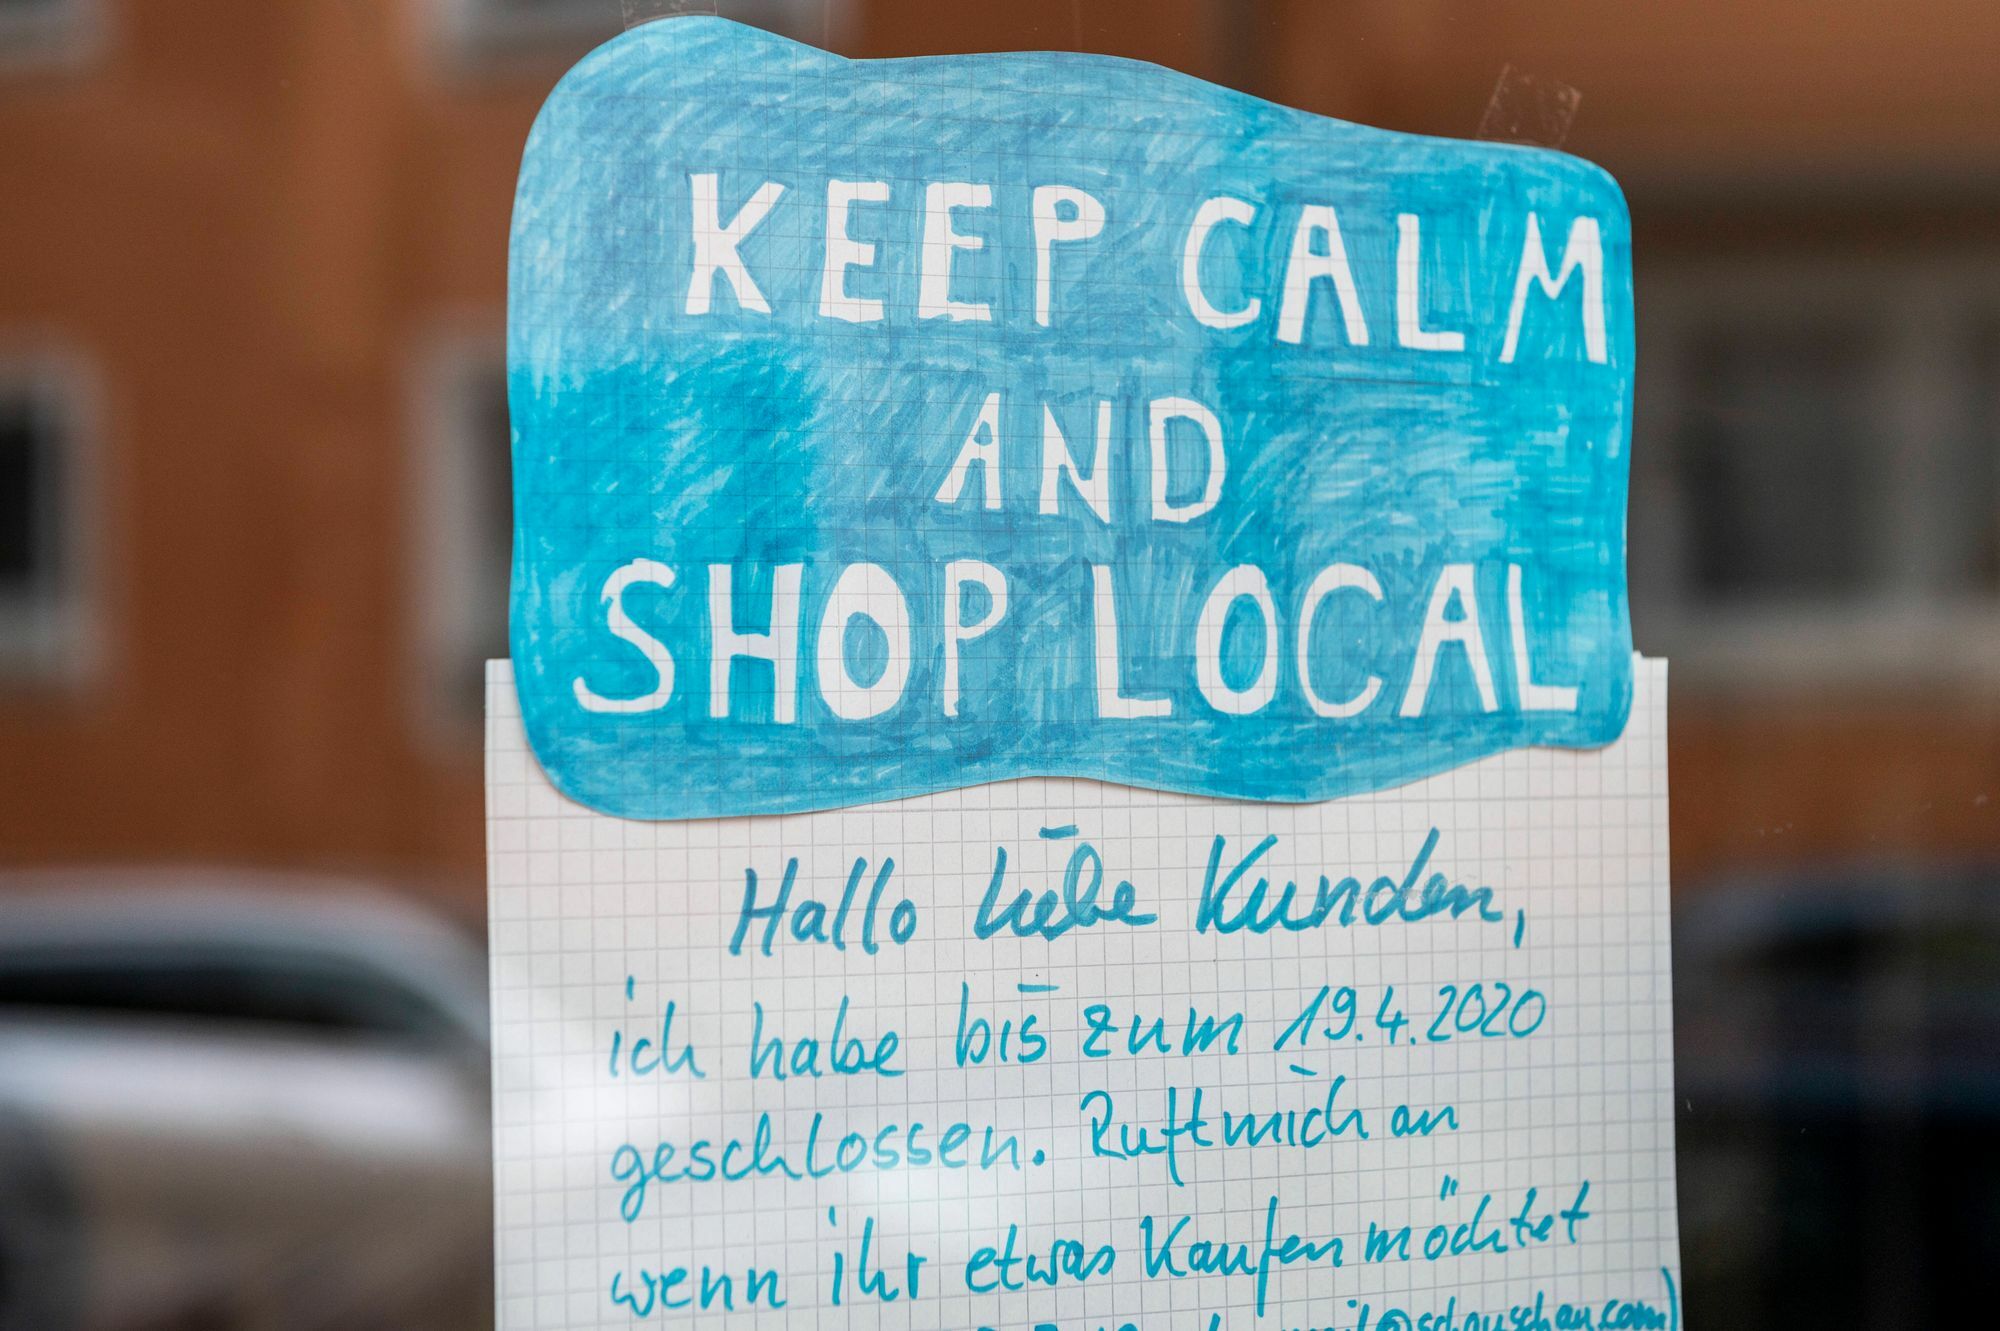 KEEP CALM
AND
SHOP LOCAL
Hallo liebe Kunden,
ich habe bis zum 19.4.2020
geschlossen. Ruft mich an
wenn ihr etwas kaufen möchtet
mail@schauschau.com)